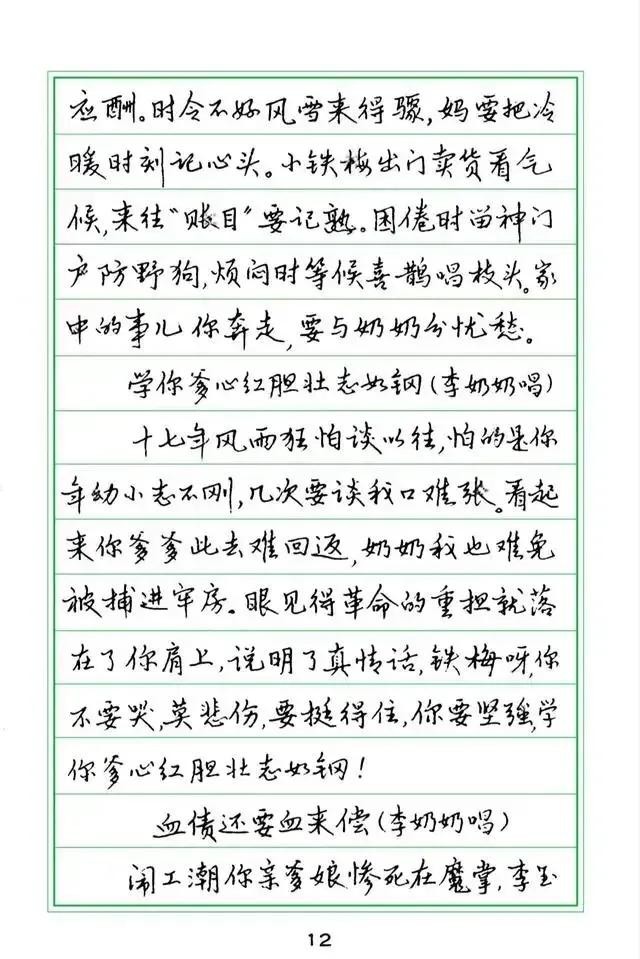 应酬。时令不好风雪来得骤，妈要把冷
暖时刻记心头。小铁梅出门卖货看气
候，来往“账目”要记熟。困倦时留神门
户防野狗，烦闷时等候喜鹊唱枝头。家
中的事儿你奔走，要与奶奶分忧愁。
学你爹心红胆壮志如钢（李奶奶唱）
十七年风雨狂怕谈以往，怕的是你
年幼小志不刚，几次要谈我口难张。看起
来你爹爹此去难回返，奶奶我也难免
被捕进牢房。眼见得革命的重担就落
在了你肩上，说明了真情话，铁梅呀，你
不要哭，莫悲伤，要挺得住，你要坚强，学
你爹心红胆壮志如钢！
血债还要血来偿（李奶奶唱）
闹工潮你亲爹娘惨死在魔掌，李玉
12